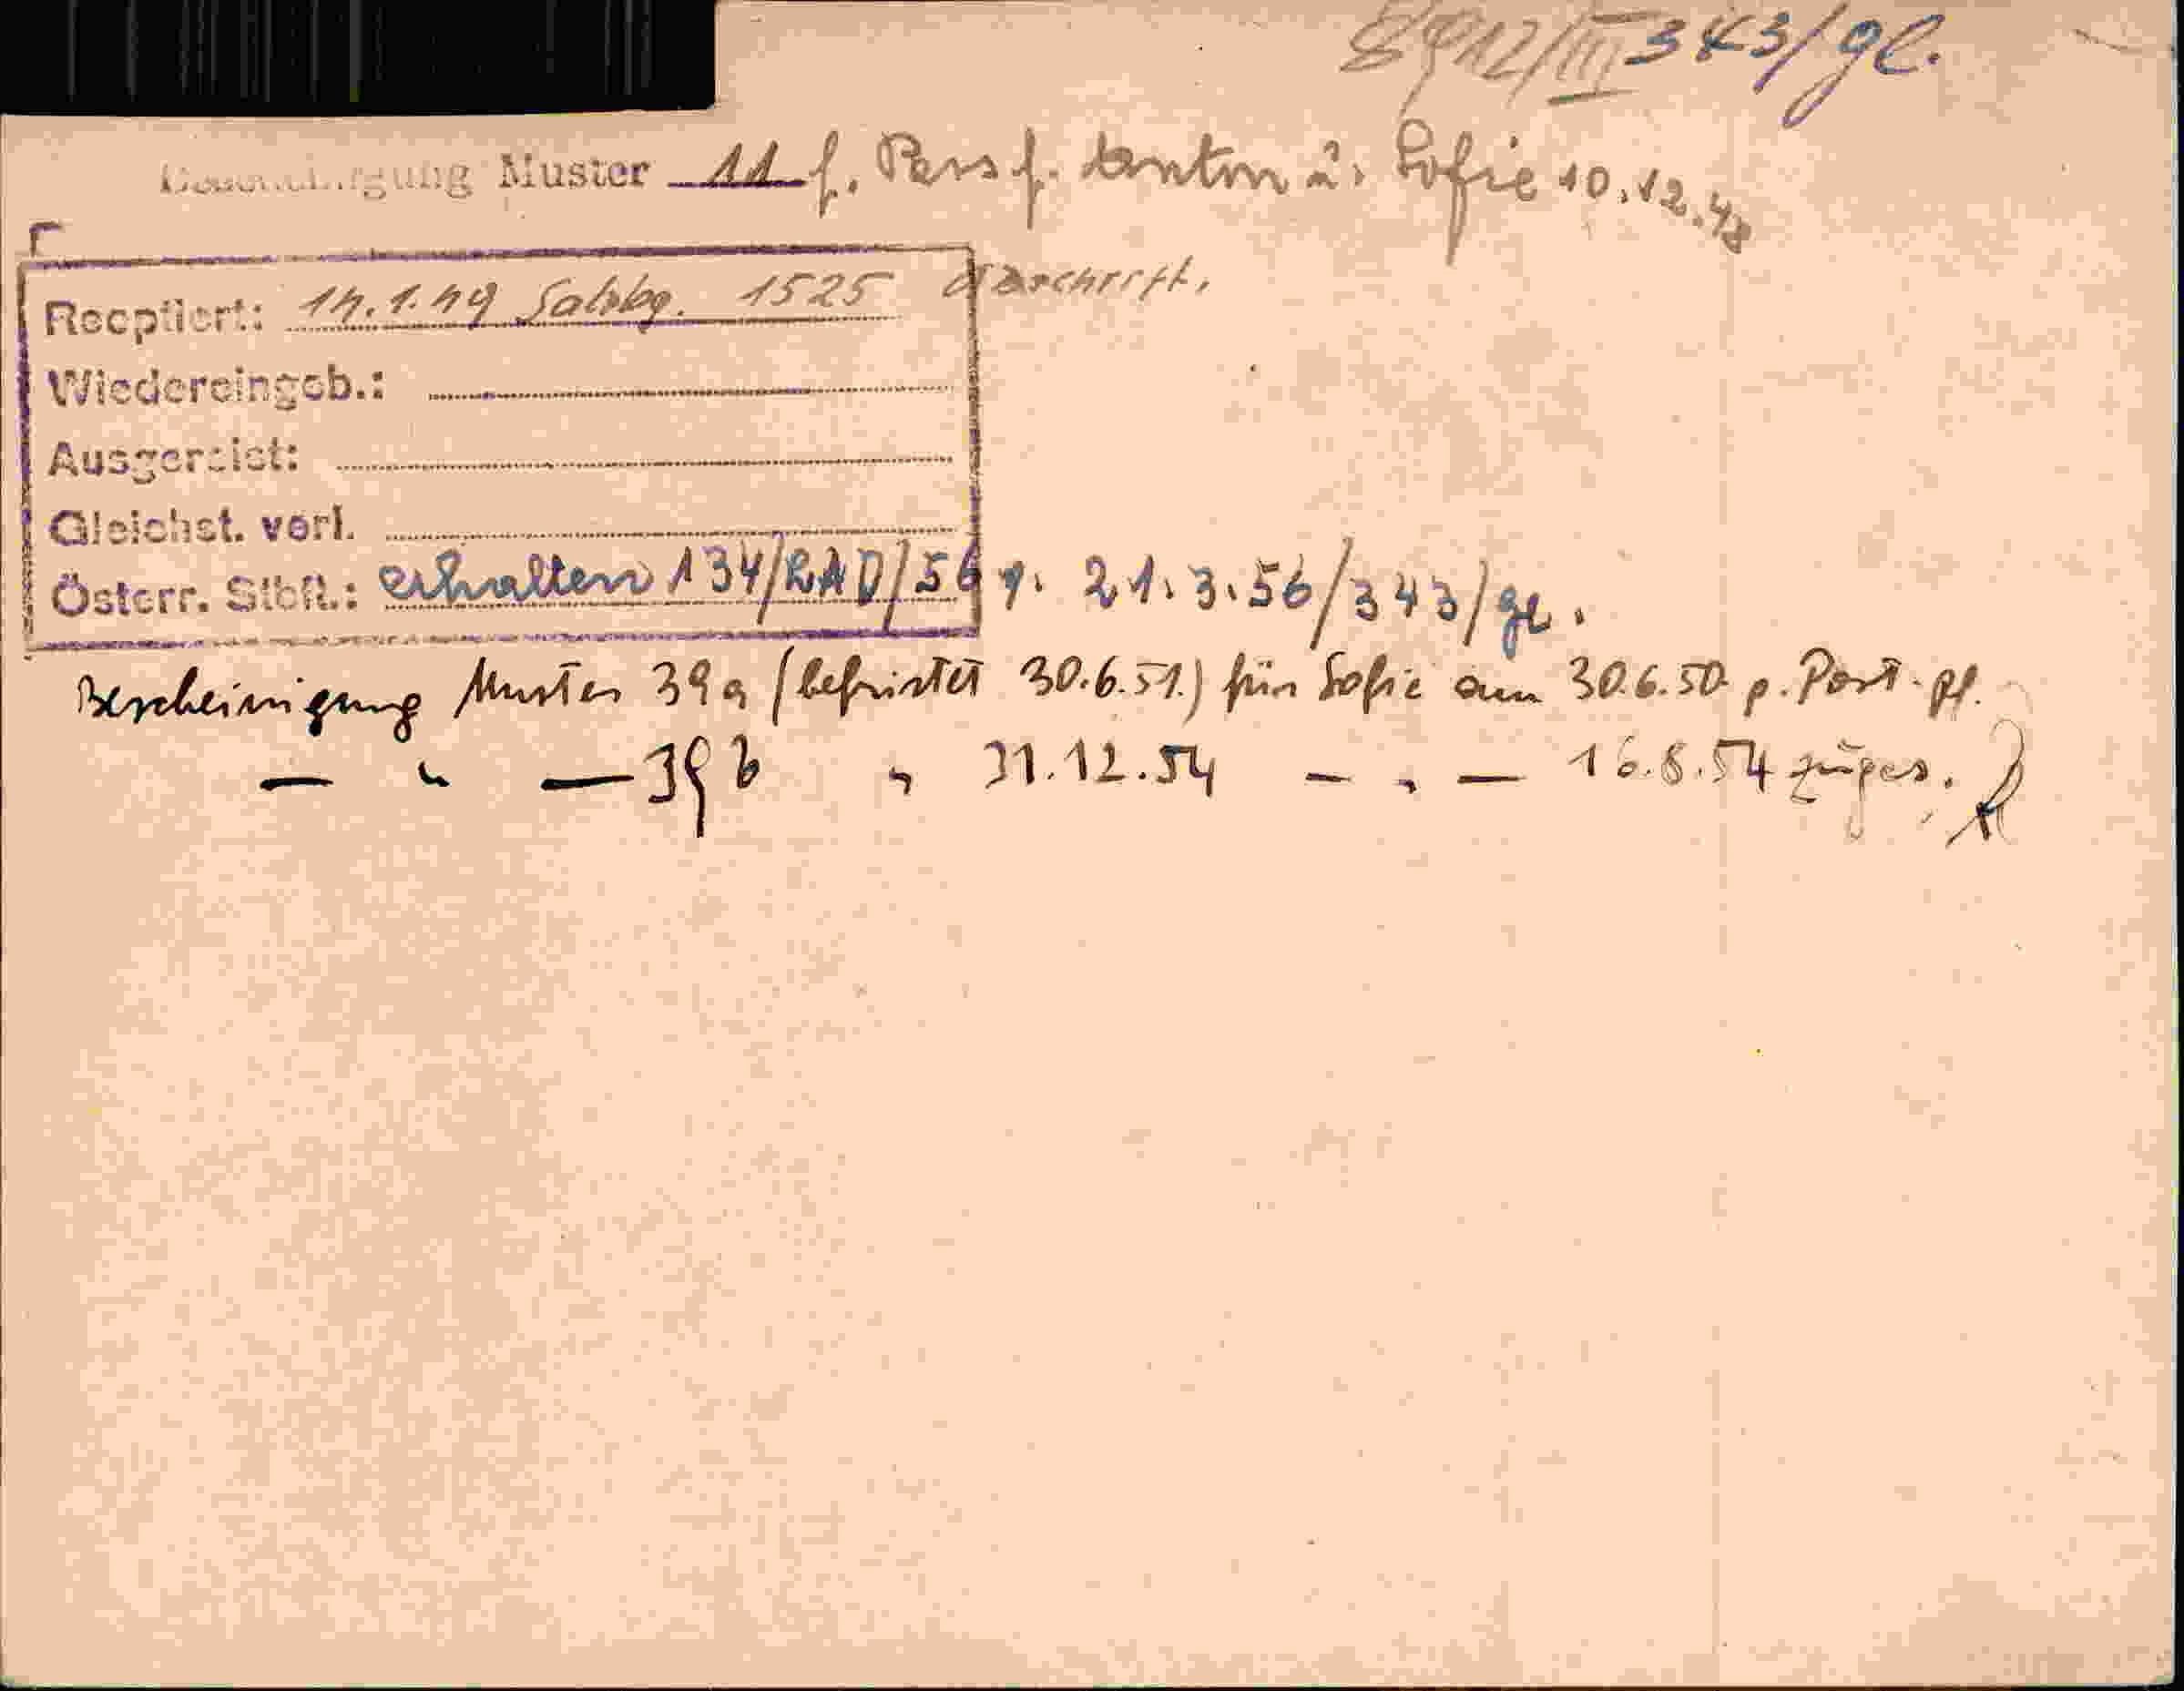 12/III 343/gl.
Muster 11 f. Pers f. Anton u. Sofie 10.12.48
Recptiert: 14.1.49 Salzbg. 1525 Abschrift.
Wiedereingeb.:
Ausgereist:
Gleichst. verl.
Österr. Stbft.: erhalten 134/RAD/56 v. 21.3.56/343/gl.
Bescheinigung Muster 39a (befristet 30.6.51.) für Sofie am 30.6.50 p. Post. gf.
— " — 39 b " 31.12.54 — " — 16.8.54 zuges.